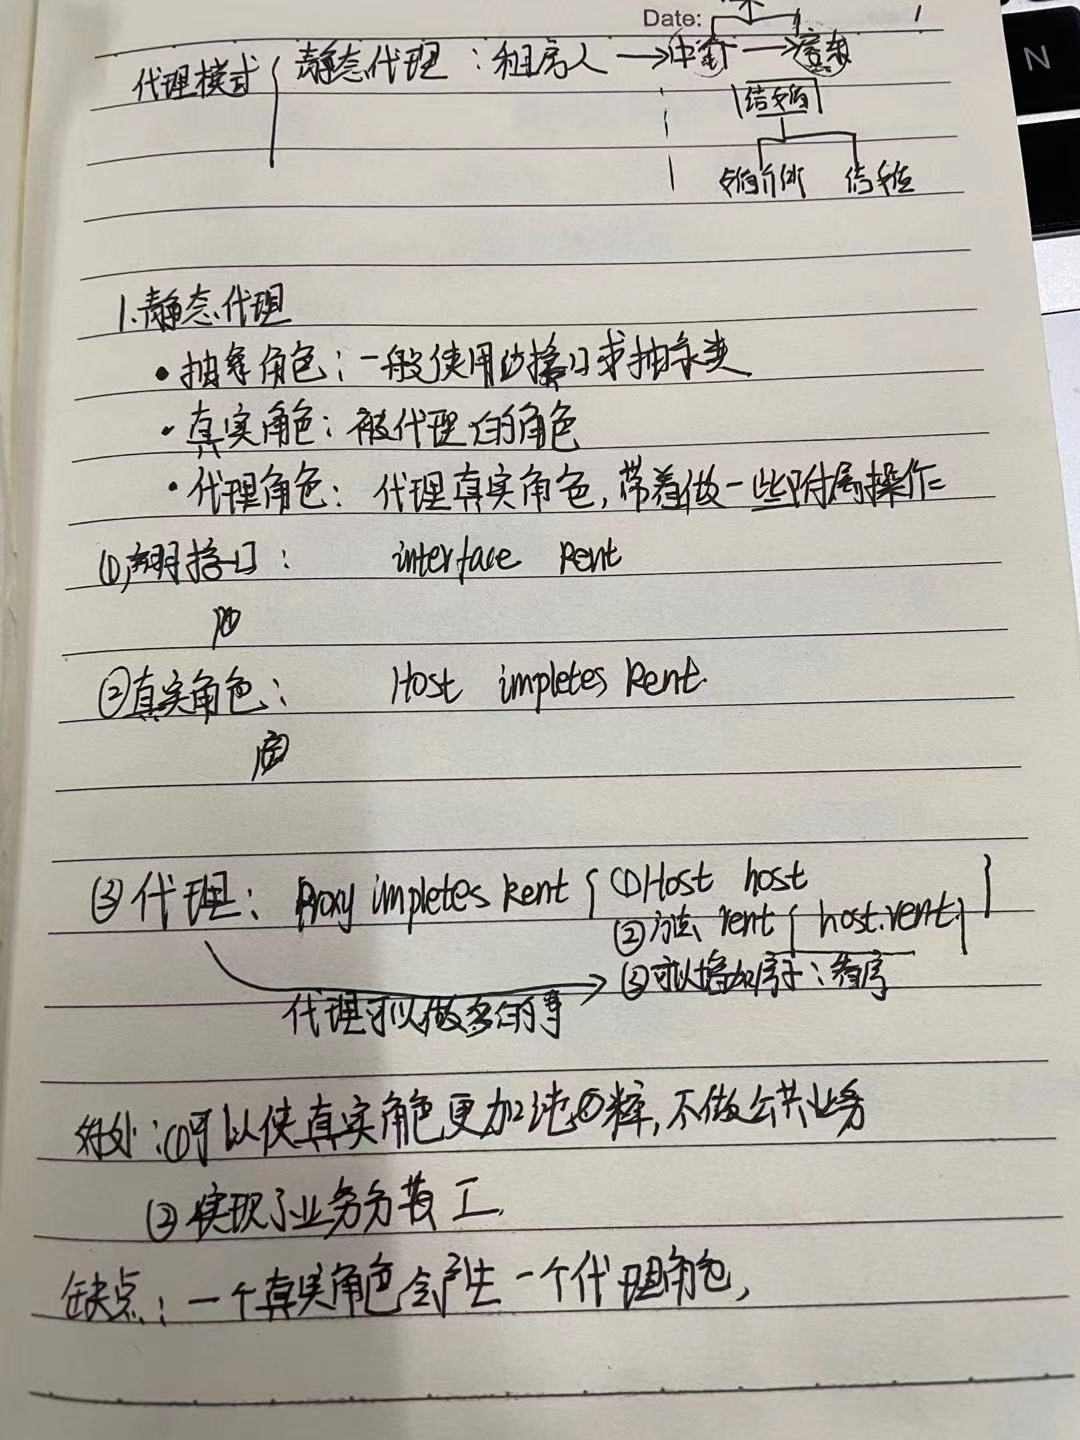 Date:
1
N
代理模式 { 静态代理：租房人 → 中介 → 房东
结婚
婚介所 结婚
1.静态代理
• 抽象角色：一般使用边接口或抽象类
• 真实角色：被代理的角色
• 代理角色：代理真实角色，带着做一些附属操作
① 接口： interface Rent
②真实角色： Host impletes Rent.
③代理： Proxy impletes Rent { ①Host host }
②方法 rent { host.rent }
③可以增加房子：看房
代理可以做多的事
好处：①可以使真实角色更加纯粹，不做公共业务
②实现了业务分工.
缺点：一个真实角色会产生一个代理角色，